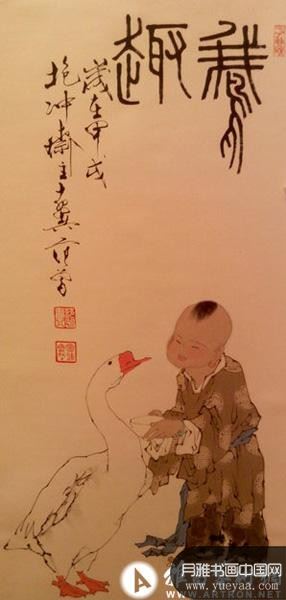 鵝趣
歲在甲戌
抱冲齋主十翼范曾
月雅书画中国网
www.yueyaa.com
WWW.ARTRON.NET